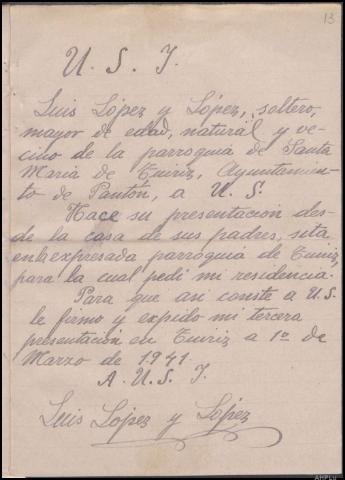 13
U. S. I.
Luis López y López, soltero,
mayor de edad, natural y ve-
cino de la parroquia de Santa
María de Tuiriz, Ayuntamien-
to de Pantón, a U. S.
Hace su presentación des-
de la casa de sus padres, sita
en la expresada parroquia de Tuiriz
para la cual pedi mi residencia.
Para que asi conste a U.S.
le firmo y expido mi tercera
presentación en Tuiriz a 1º de
Marzo de 1941.
A. U. S. I.
Luis López y López
AHPLu